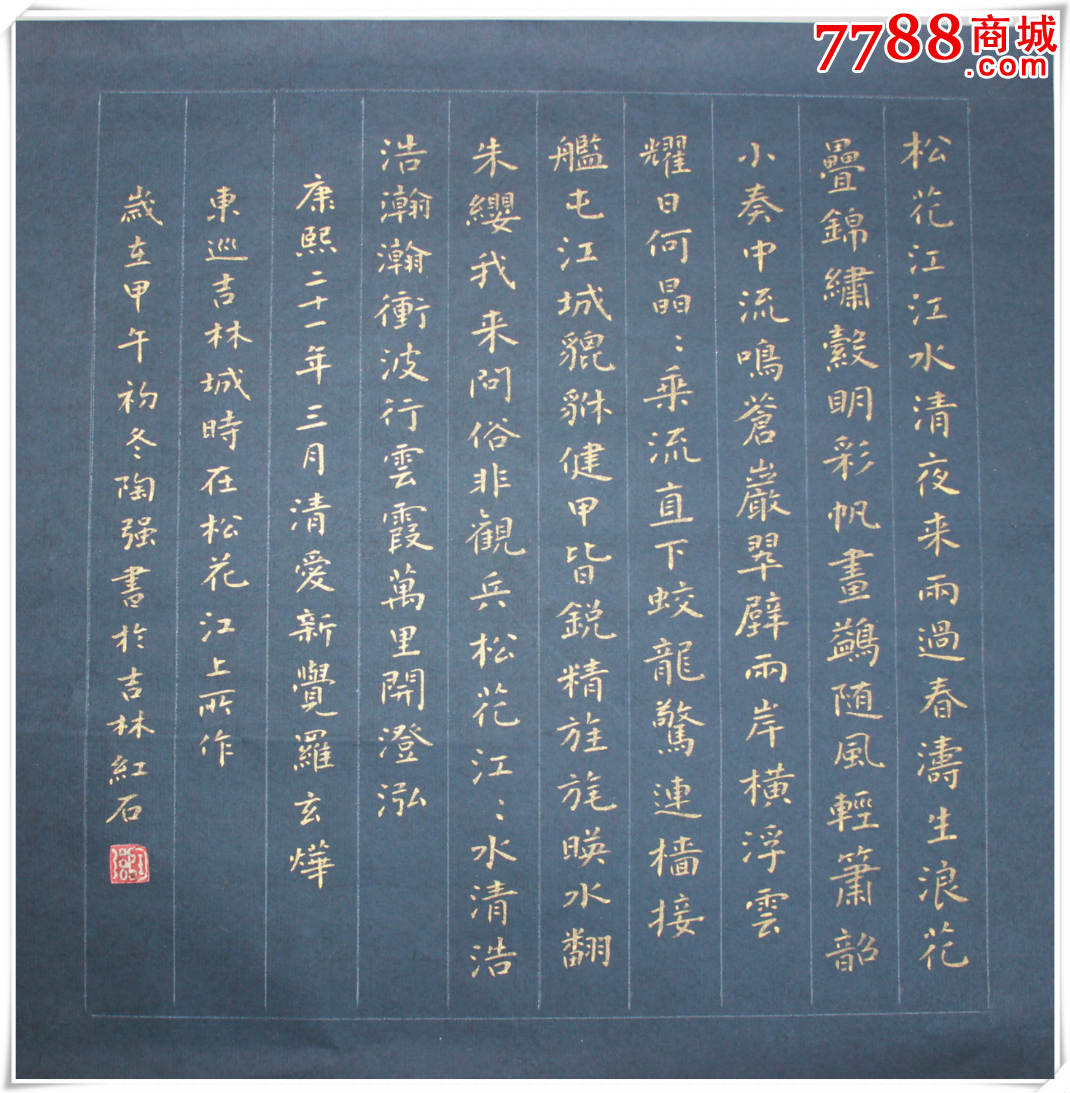 松花江江水清夜来雨過春濤生浪花
疊錦繡縠明彩帆畫鷁随風輕簫韶
小奏中流鳴蒼巖翠壁兩岸橫浮雲
耀日何晶〻乗流直下蛟龍驚連檣接
艦屯江城貔貅健甲皆銳精旌旄暎水翻
朱纓我来問俗非觀兵松花江〻水清浩
浩瀚瀚衝波行雲霞萬里開澄泓
康熙二十一年三月清愛新覺羅玄燁
東巡吉林城時在松花江上所作
歲在甲午初冬陶强書於吉林紅石
7788商城
.com